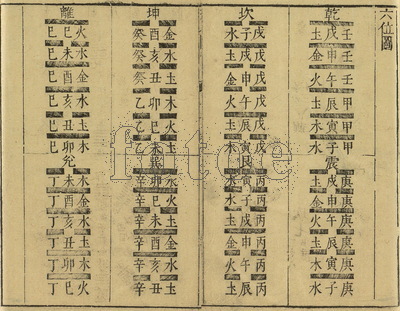 六位圖
乾
壬戌土
壬申金
壬午火
甲辰土
甲寅木
甲子水
震
庚戌土
庚申金
庚午火
庚辰土
庚寅木
庚子水
坎
戊子水
戊戌土
戊申金
戊午火
戊辰土
戊寅木
艮
丙寅木
丙子水
丙戌土
丙申金
丙午火
丙辰土
坤
癸酉金
癸亥水
癸丑土
乙卯木
乙巳火
乙未土
巽
辛卯木
辛巳火
辛未土
辛酉金
辛亥水
辛丑土
離
己巳火
己未土
己酉金
己亥水
己丑土
己卯木
兌
丁未土
丁酉金
丁亥水
丁丑土
丁卯木
丁巳火